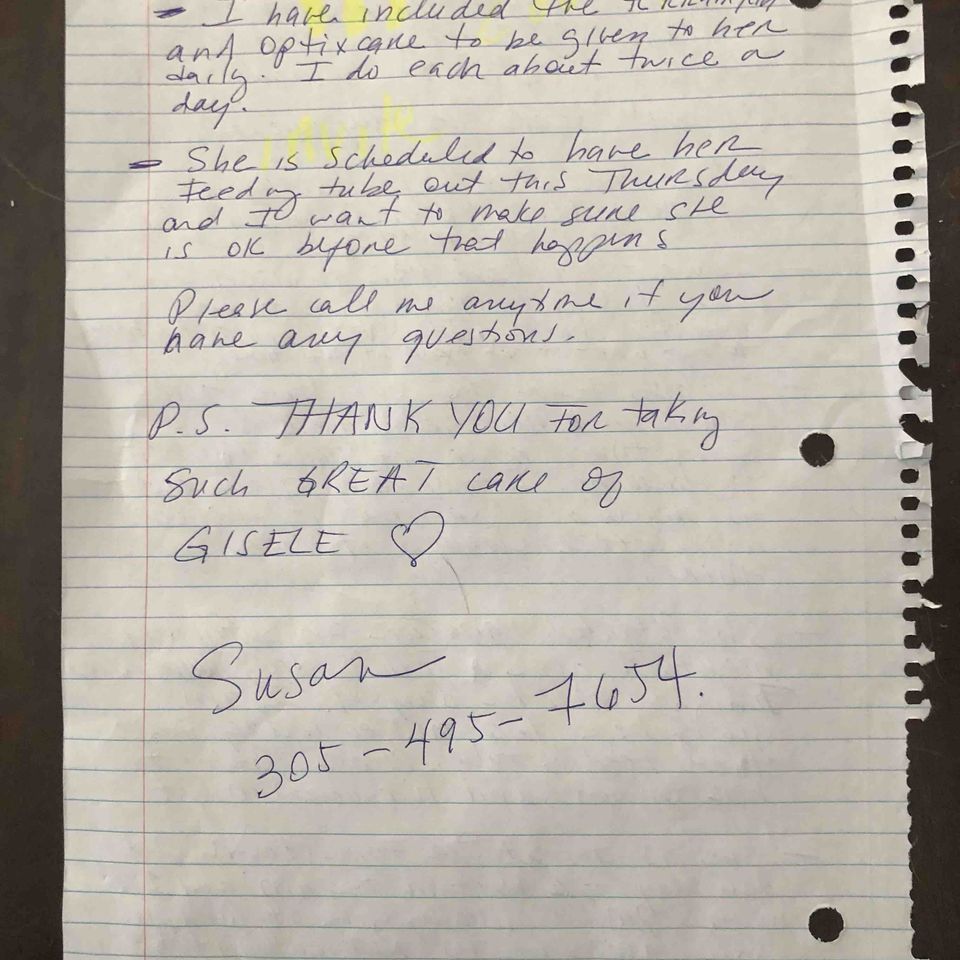 - I have included the
and Optixcare to be given to her
daily. I do each about twice a
day.
- She is scheduled to have her
feeding tube out this Thursday
and I want to make sure she
is ok before that happens
Please call me anytime if you
have any questions.
P.S. THANK YOU For taking
Such GREAT care of
GISELE ♡
Susan
305-495-7654.